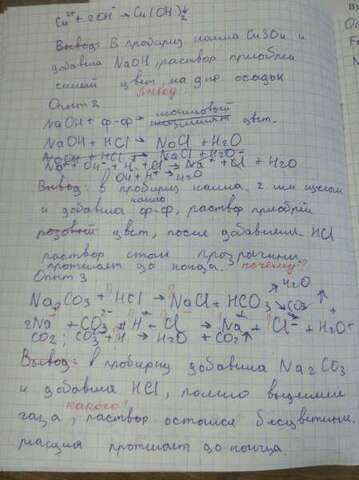 Cu²⁺ + 2OH⁻ → Cu(OH)₂↓
Вывод: В пробирку налила CuSO₄ и
добавила NaOH, раствор приобрёл
синий цвет, на дне осадок
Вывод
Опыт 2
NaOH + ф-ф → малиновый цвет.
NaOH + HCl → NaCl + H₂O
NaOH + HCl → NaCl + H₂O
Na⁺ + OH⁻ + H⁺ + Cl⁻ → Na⁺ + Cl⁻ + H₂O
OH + H⁺ → H₂O
Вывод: в пробирку налила 2 мл щелочи
и добавила каплю ф-ф, раствор приобрёл
розовый цвет, после добавления HCl
раствор стал прозрачным
протекает до конца. почему?
Опыт 3
Na₂CO₃ + HCl → NaCl + HCO₃ → H₂O
CO₂↑
2Na + CO₃²⁻ + H⁺ Cl⁻ → Na + Cl⁻ + H₂O
CO₂; CO₃²⁻ + H → H₂O + CO₂↑
Вывод: в пробирку добавила Na₂CO₃
и добавила HCl, пошло выделение
какого?
газа, раствор остался бесцветным.
реакция протекает до конца